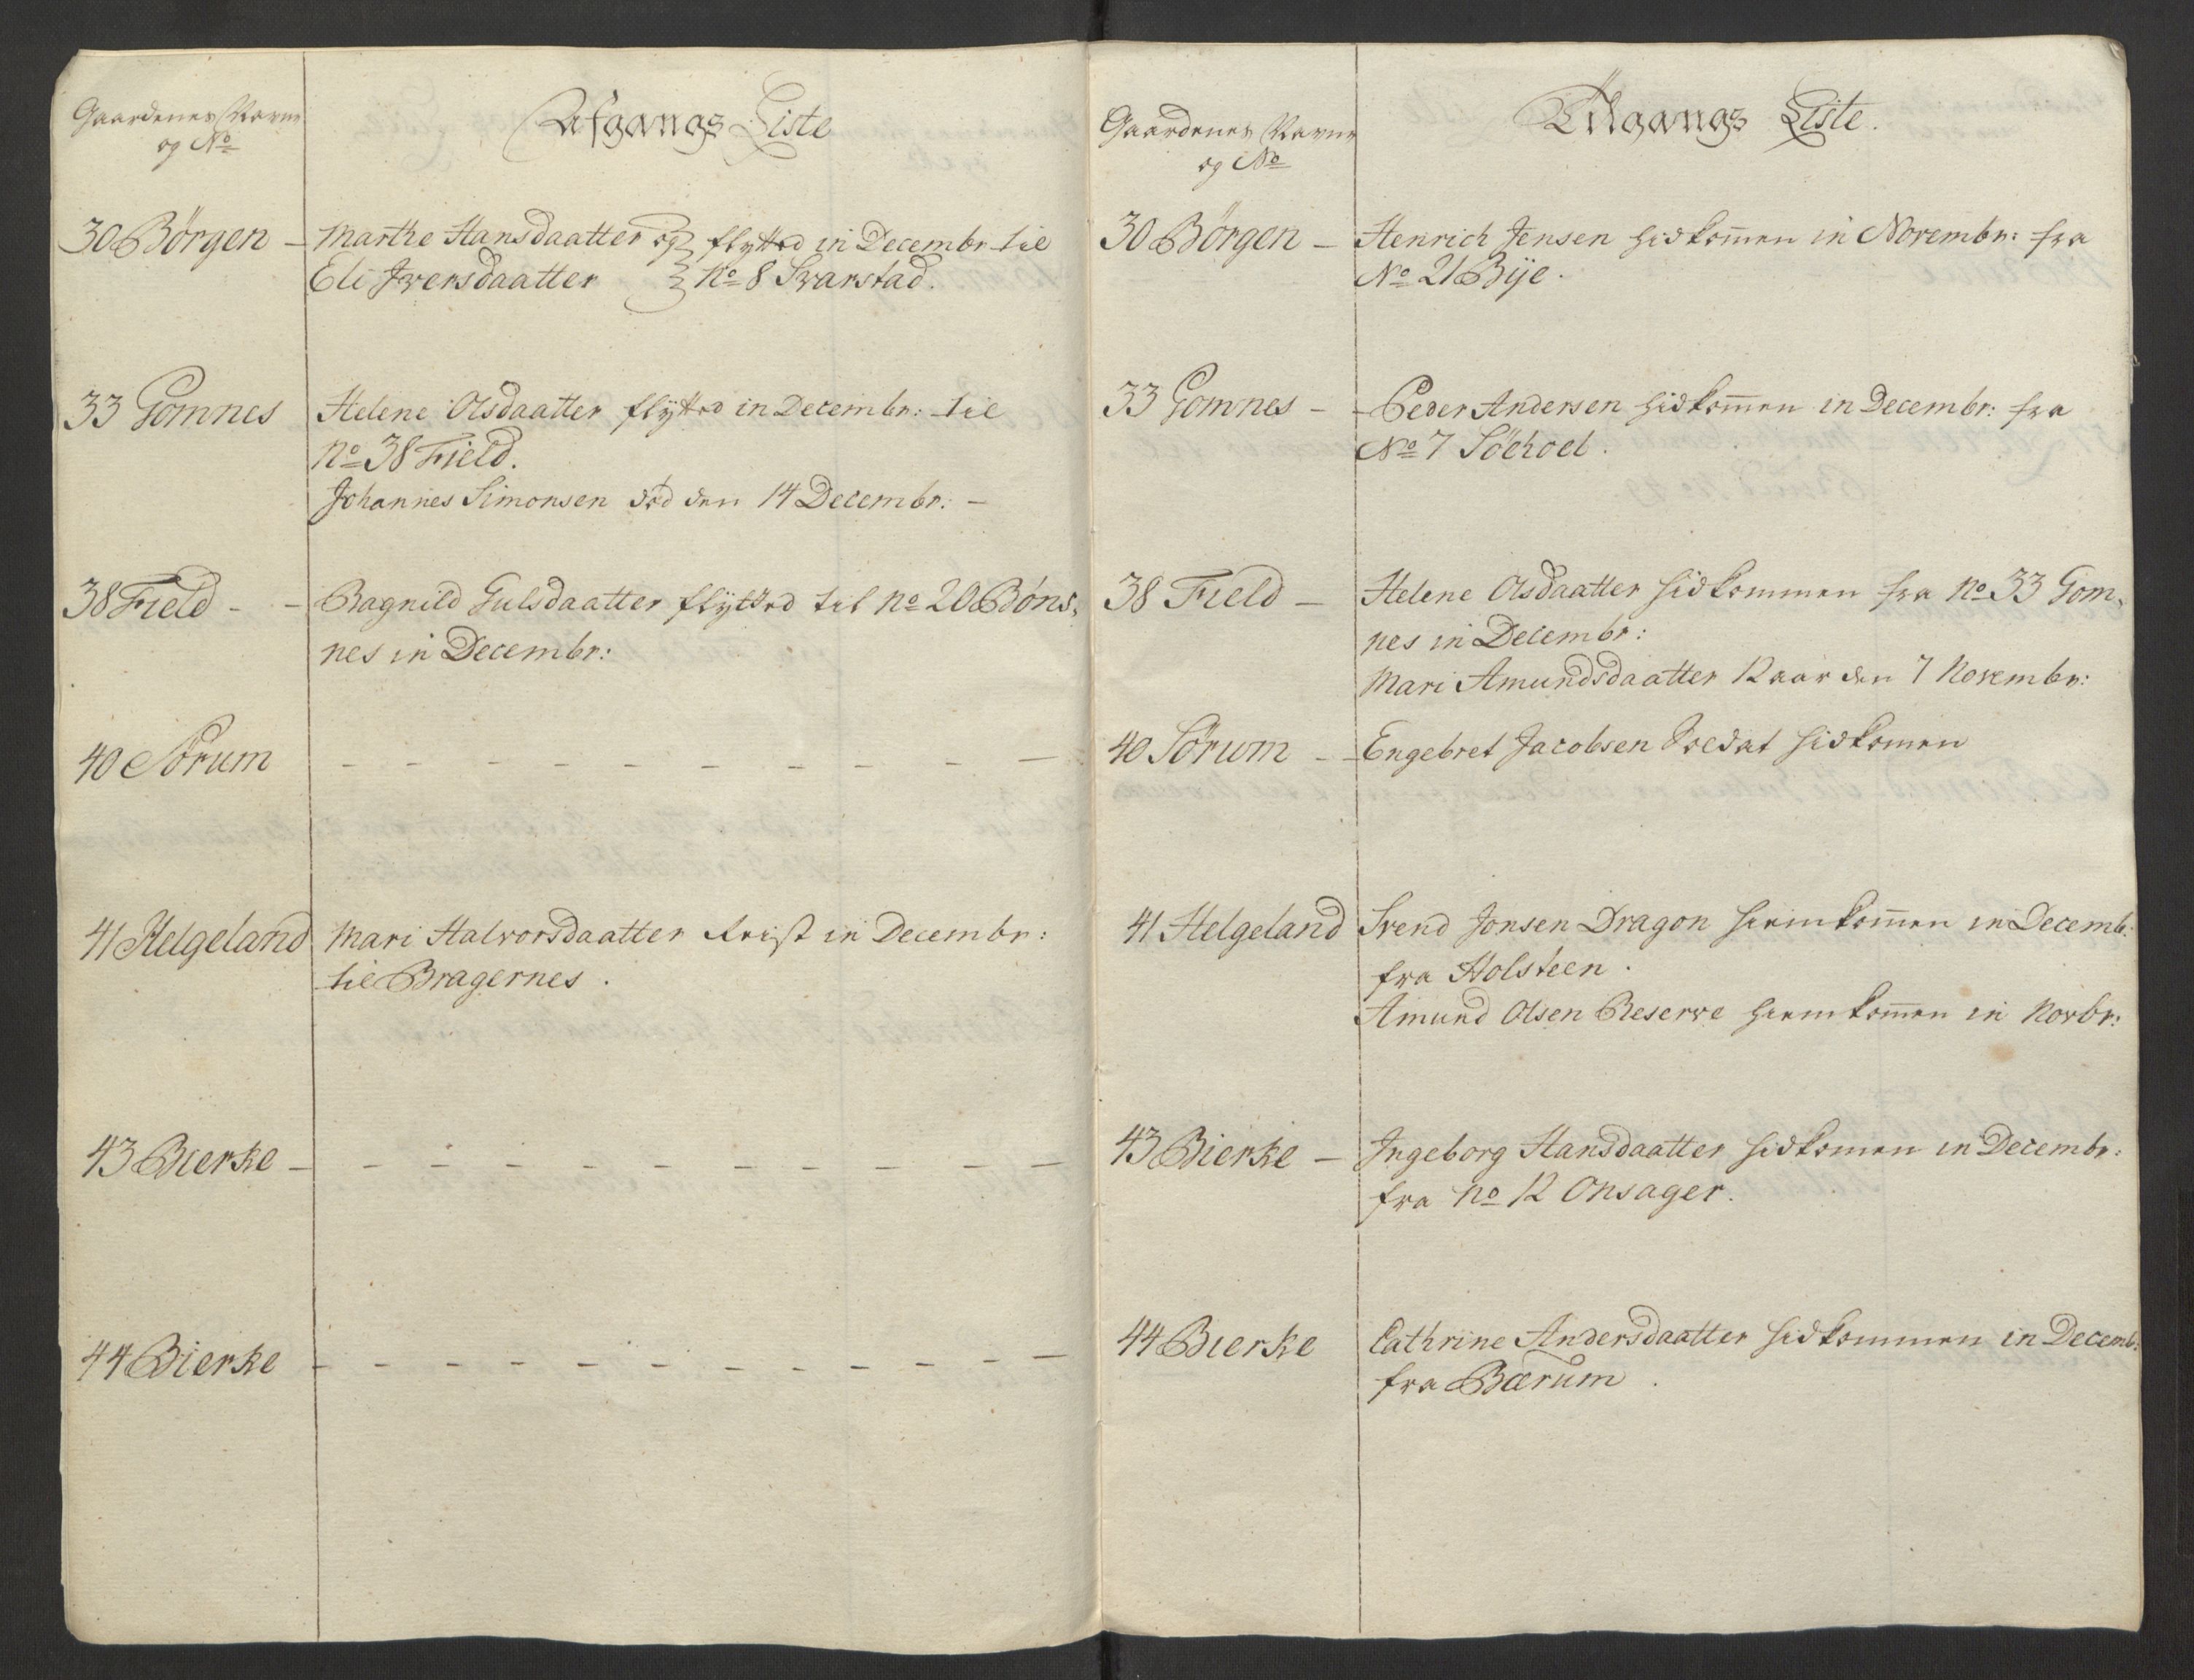 Gaardenes Navne
og No
Afgangs Liste
30 Börgen – Marthe Hansdaatter og } flytted in Decembr til
Eli Iversdaatter } No 8 Svarstad.
33 Gomnes Helene Olsdaatter flÿtted in Decembr: til
No 38 Field.
Johannes Simonsen död den 14 Decembr. –
38 Field - - Ragnild Gulsdaatter flÿtted til No 20 Böns,
nes in Decembr:
40 Sörum – – – – – – – – – –
41 Helgeland Mari Halvorsdaatter reist in Decembr:
til Bragernes.
43 Bierke – – – – – – – – – – – –
44 Bierke – – – – – – – – – – –
Gaardenes Navne
og No
Tilgangs Liste.
30 Börgen – Henrich Jensen hidkom̄en in Novembr: fra
No 21 Bÿe.
33 Gomnes - - Peder Andersen hidkom̄en in Decembr: fra
No 7 Söehoel.
38 Field – Helene Olsdaatter hidkommen fra No 33 Gom,
nes in Decembr:
Mari Amundsdaatter 12 aar den 7 Novembr:
40 Sörum - - Engebret Jacobsen Soldat hidkomen
41 Helgeland Svend Jonsen Dragon hiemkom̄en in Decemb:
fra Holsteen.
Amund Olsen Reserve hiemkom̄en in Novbr:
43 Bierke – Ingeborg Hansdaatter hidkomen in Decembr:
fra No 12 Onsager.
44 Bierke Cathrine Andersdaatter hidkommen in Decemb:
fra Bærum.